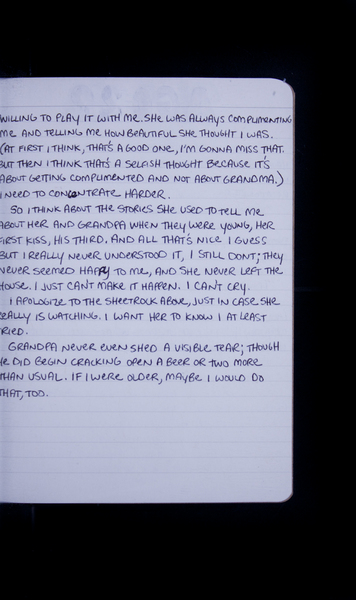 WILLING TO PLAY IT WITH ME. SHE WAS ALWAYS COMPLIMENTING
ME AND TELLING ME HOW BEAUTIFUL SHE THOUGHT I WAS.
(AT FIRST I THINK, THAT'S A GOOD ONE, I'M GONNA MISS THAT.
BUT THEN I THINK THAT'S A SELFISH THOUGHT BECAUSE IT'S
ABOUT GETTING COMPLIMENTED AND NOT ABOUT GRANDMA.)
I NEED TO CONCENTRATE HARDER.
SO I THINK ABOUT THE STORIES SHE USED TO TELL ME
ABOUT HER AND GRANDPA WHEN THEY WERE YOUNG, HER
FIRST KISS, HIS THIRD. AND ALL THAT'S NICE I GUESS
BUT I REALLY NEVER UNDERSTOOD IT, I STILL DON'T; THEY
NEVER SEEMED HAPPY TO ME, AND SHE NEVER LEFT THE
HOUSE. I JUST CAN'T MAKE IT HAPPEN. I CAN'T CRY.
I APOLOGIZE TO THE SHEETROCK ABOVE, JUST IN CASE SHE
REALLY IS WATCHING. I WANT HER TO KNOW I AT LEAST
TRIED.
GRANDPA NEVER EVEN SHED A VISIBLE TEAR; THOUGH
HE DID BEGIN CRACKING OPEN A BEER OR TWO MORE
THAN USUAL. IF I WERE OLDER, MAYBE I WOULD DO
THAT, TOO.